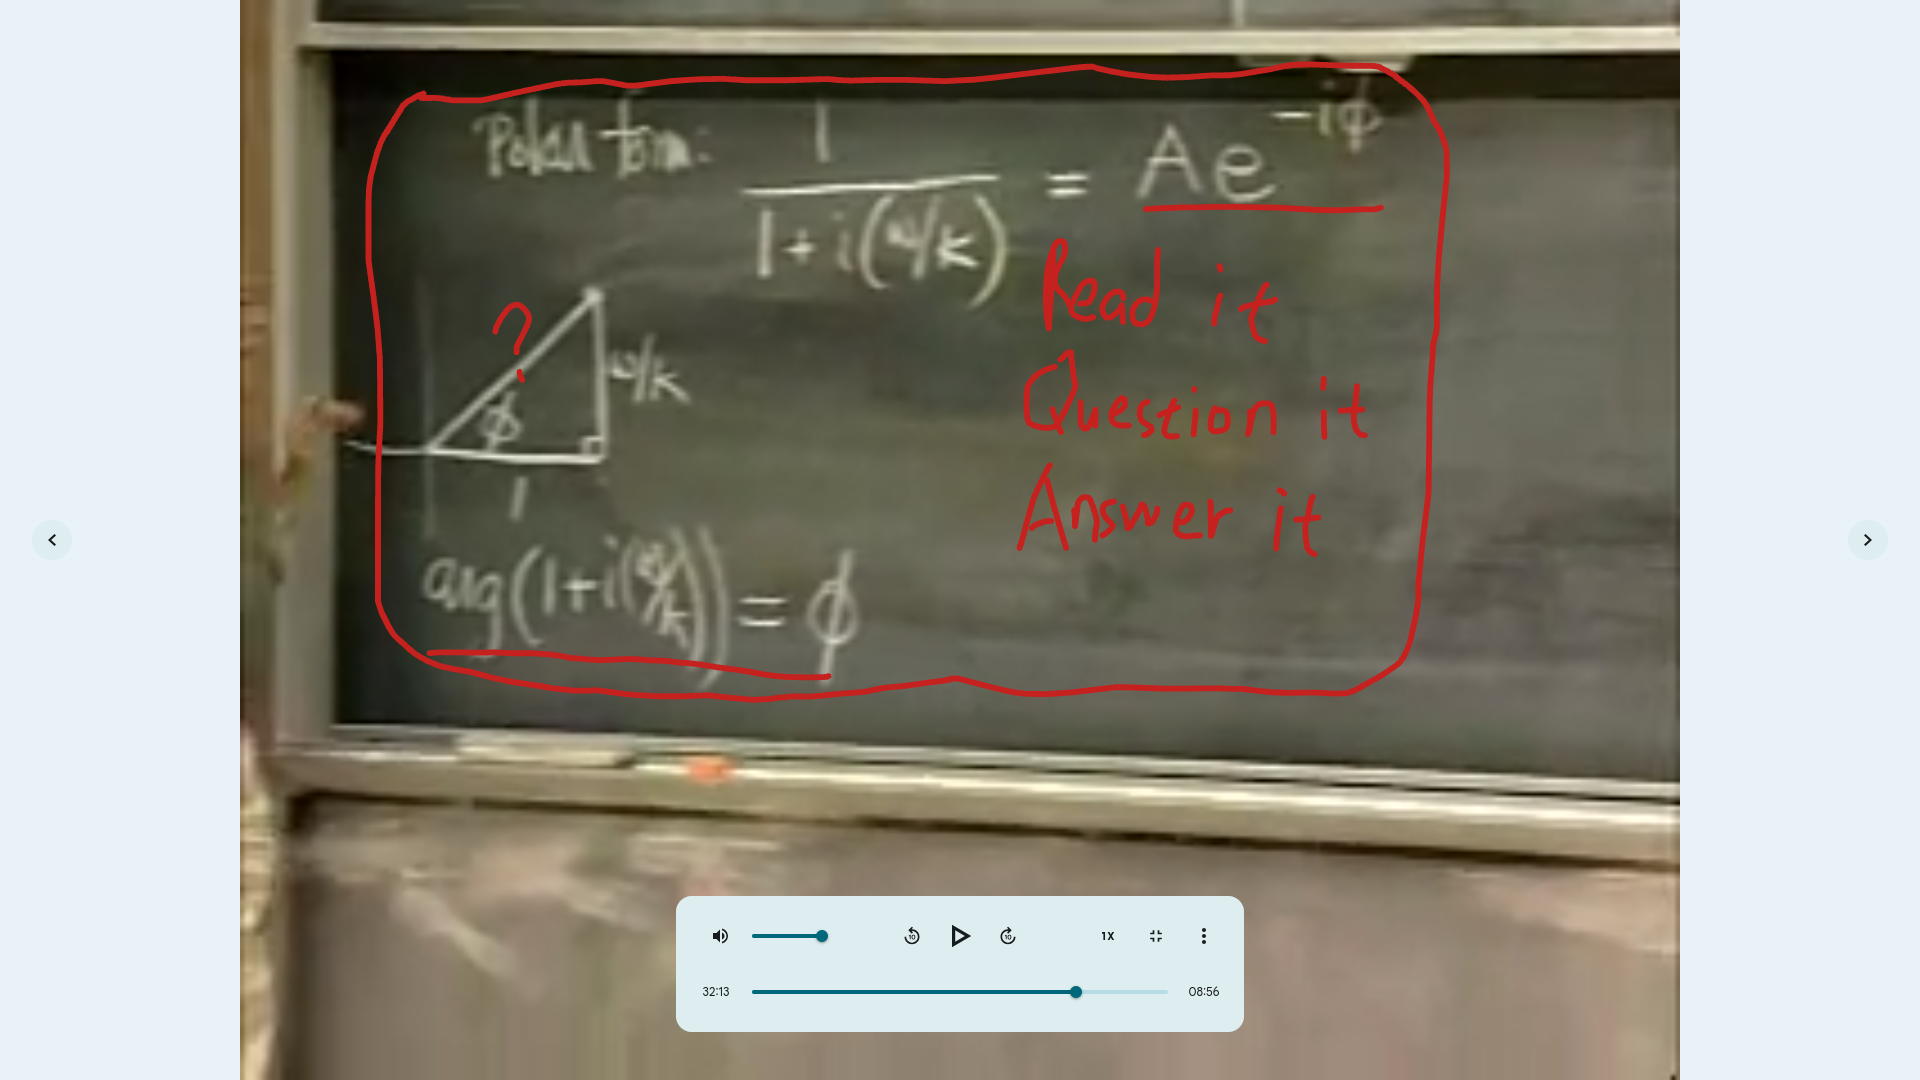 Polar form: 1 / (1 + i(ω/k)) = Ae^{-iϕ}
Read it
?
ω/k
ϕ
Question it
1
Answer it
arg(1+i(ω/k)) = ϕ
10
10
1X
32:13
08:56